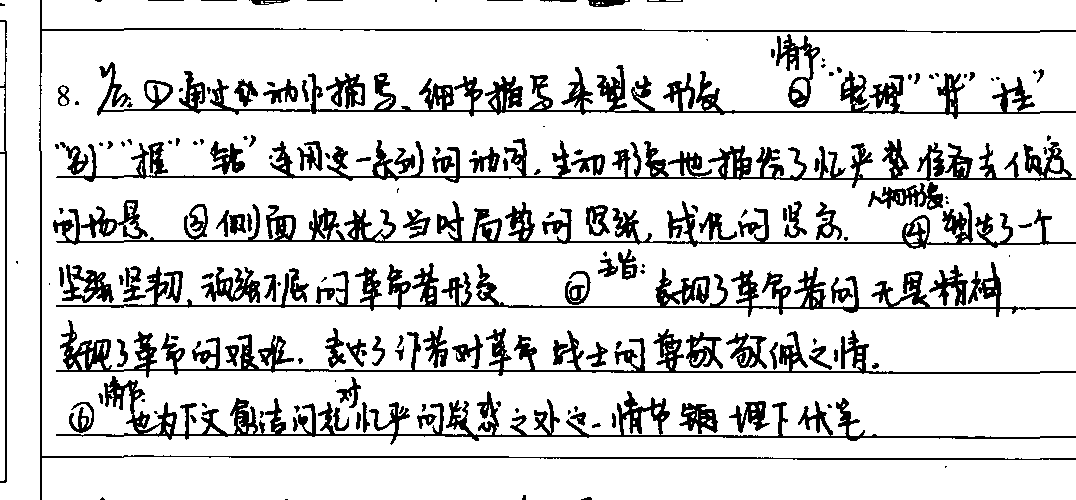 情节:
8. 答:①通过动作描写、细节描写来塑造形象. ②"整理""背""挂"
"别""握""钻"连用这一系列的动词,生动形象地描绘了忆严整装准备去侦察
的场景. ③侧面烘托了当时局势的紧张,战况的紧急. 人物形象:④塑造了一个
坚强坚韧,顽强不屈的革命者形象. ⑤主旨:表现了革命者的无畏精神,
表现了革命的艰难. 表达了作者对革命战士的尊敬敬佩之情。
⑥情节:也为下文 对忆严的疑惑之处这一情节埋下伏笔.